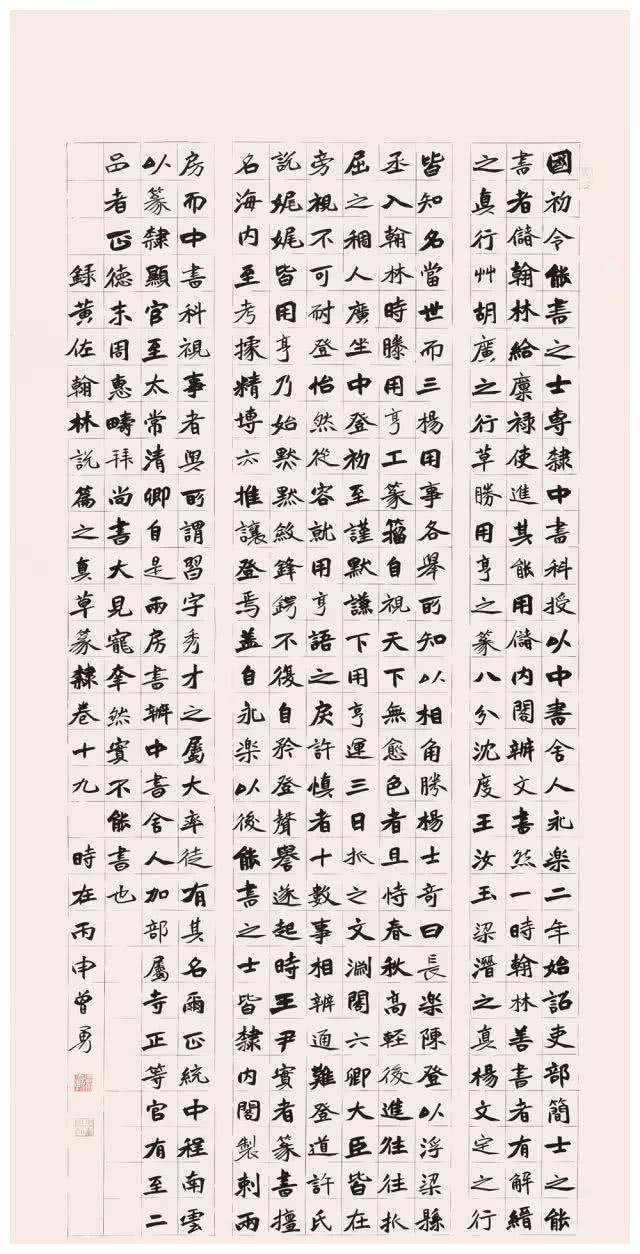 國初令能書之士專隸中書科授以中書舍人永樂二年始詔吏部簡士之能
書者儲翰林給廩祿使進其能用儲內閣辦文書然一時翰林善書者有解縉
之真行艸胡廣之行草勝用亨之篆八分沈度王汝玉梁潛之真楊文定之行
皆知名當世而三楊用事各舉所知以相角勝楊士奇曰長樂陳登以浮梁縣
丞入翰林時滕用亨工篆籀自視天下無愈色者且恃春秋高輕後進往往扒
屈之稠人廣坐中登初至謹默謙下用亨運三日扒之文淵閣六卿大臣皆在
旁視不可耐登怡然從容就用亨語之戾許慎者十數事相辨通難登道許氏
説娓娓皆用亨乃始默默斂鋒鍔不復自矜登聲譽遂起時王尹實者篆書擅
名海內至考據精博亦推讓登焉蓋自永樂以後能書之士皆隸內閣製剌兩
房而中書科視事者與所謂習字秀才之屬大率徒有其名爾正統中程南雲
以篆隸顯官至太常清卿自是兩房書辦中書舍人加部屬寺正等官有至二
品者正德末周惠疇拜尚書大見寵幸然實不能書也
錄黃佐翰林説篇之真草篆隸卷十九 時在丙申曾勇